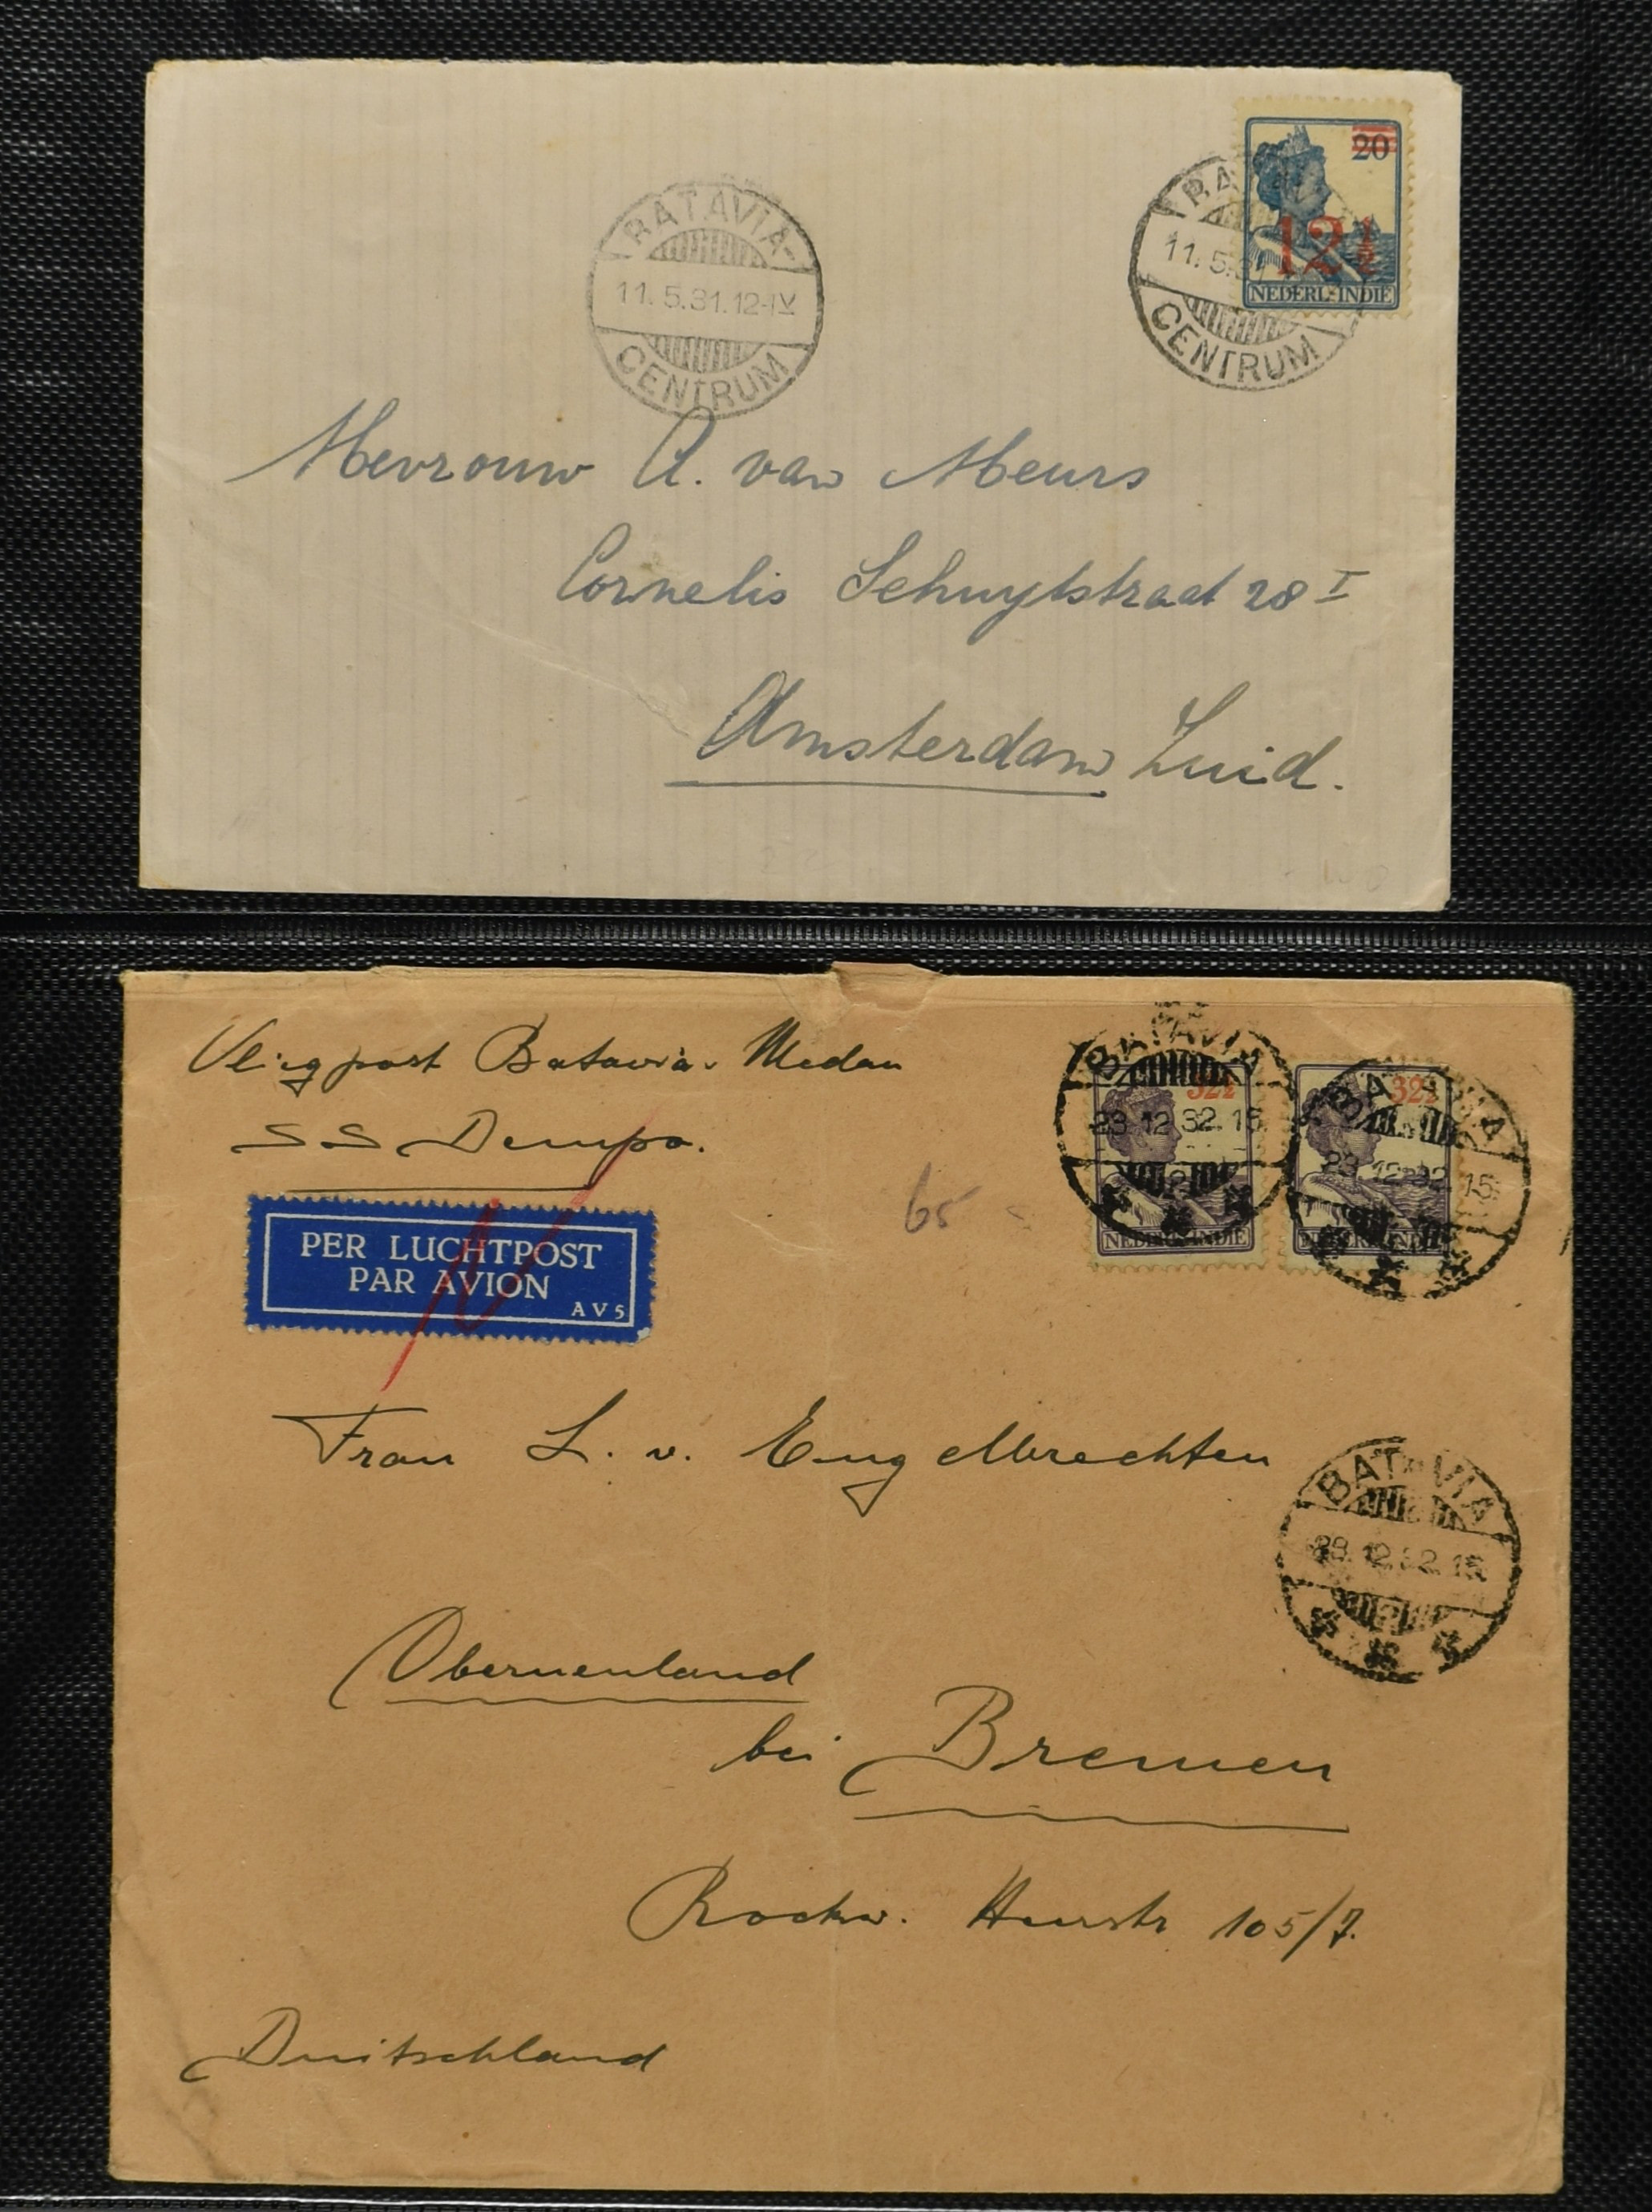 20
12½
NEDERL-INDIE
BATAVIA-
11.5.31.12-IV
CENTRUM
BA
11.5.31
CENTRUM
Mevrouw A. van Meurs
Cornelis Schuytstraat 28 I
Amsterdam Zuid.
Vliegpost Batavia-Medan
SS Dempo.
PER LUCHTPOST
PAR AVION
AV5
65
BATAVIA
32½
23.12.32.15
2
NEDERL-INDIE
BATAVIA
32½
23.12.32.15
NEDERL-INDIE
Frau L. v. Engelbrechten
BATAVIA
23.12.32.15
Oberneuland
bei Bremen
Rockw. Heerstr 105/7.
Deutschland